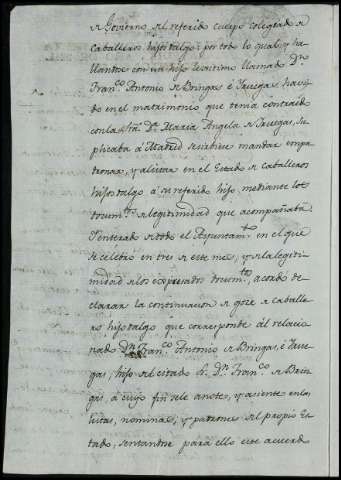 de Govierno del referido cuerpo colegiado de
Caballeros hijosdalgo: por todo lo qual, y ha
llandose con un hijo lexitimo llamado Dn.
Franco. Antonio de Bringas é Yruegas, havi
do en el matrimonio que tenia contraido
con la Sra. Dª. Maria Angela de Yruegas, su
plicaba á Madrid se sirviese mandar empa
dronar, y alistar en el Estado de caballeros
hijosdalgo á su referido hijo, mediante los
docum.tos de legitimidad que acompañaba:
Y enterado de todo el Ayuntam.to en el que
se celebró en tres de este mes, y de la legiti
midad de los expresados docum.tos, acordó de
clarar la continuacion de goze de caballe
ro hijodalgo que corresponde ál relacio
nado Dn. Franco. Antonio de Bringas, é Yrue
gas, hijo del citado Sr. Dn. Franco. de Brin
gas, á cuyo fin se le anote, y asiente en las
listas, nominas, y padrones del propio Es
tado, sentandose para ello este acuerdo